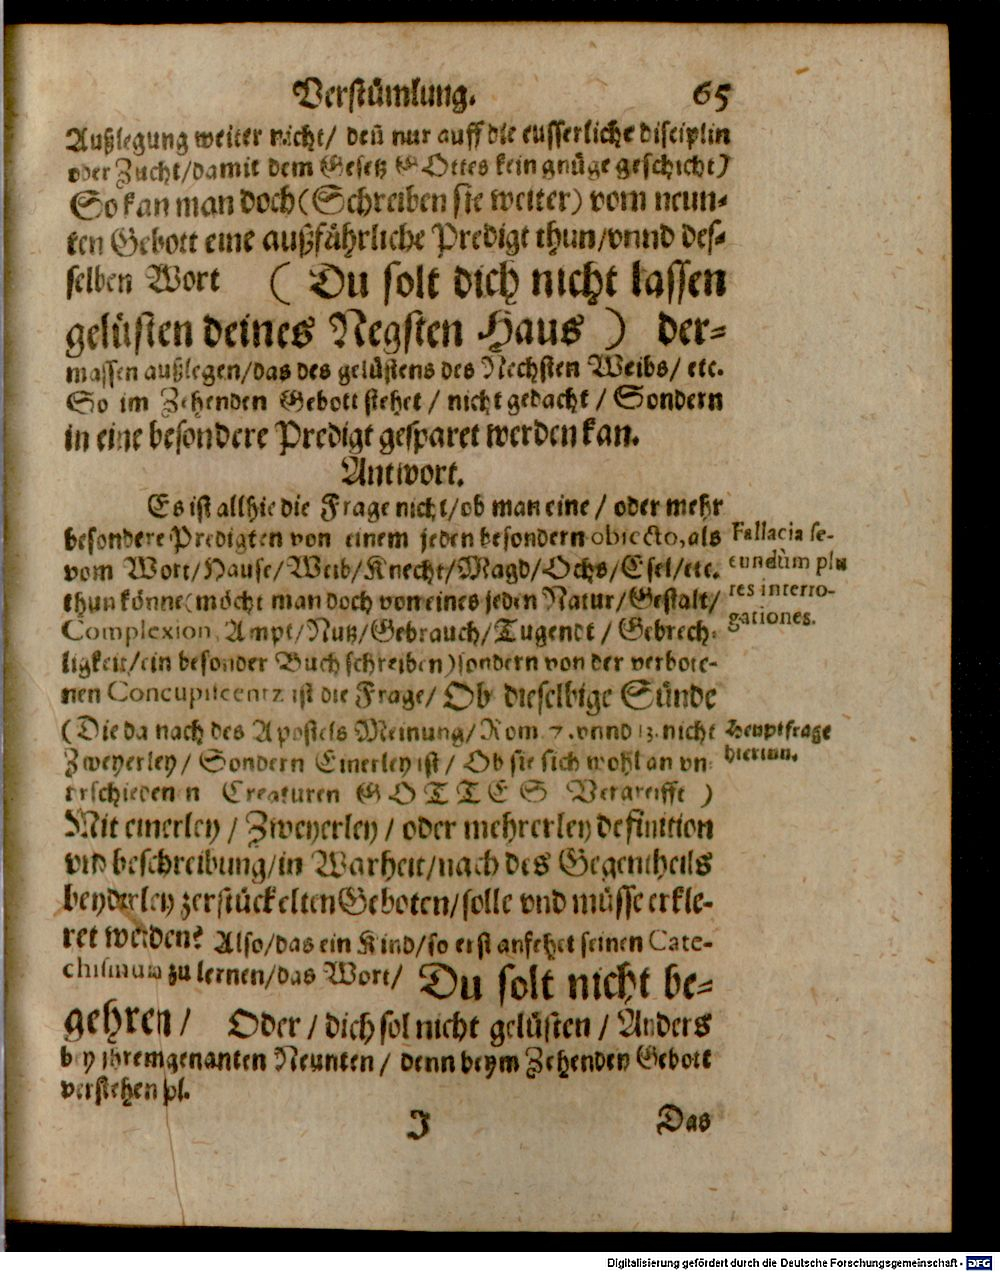 Verstümlung. 65
Außlegung weiter nicht/ deñ nur auff die eusserliche disciplin
oder Zucht/damit dem Gesetz GOttes kein gnüge geschicht)
So kan man doch (Schreiben sie weiter) vom neun-
ten Gebott eine außfährliche Predigt thun/vnnd des-
selben Wort ( Du solt dich nicht lassen
gelüsten deines Negsten Haus ) der-
massen außlegen/das des gelüstens des Nechsten Weibs/ etc.
So im Zehenden Gebott stehet / nicht gedacht / Sondern
in eine besondere Predigt gesparet werden kan.
Antwort.
Es ist allhie die Frage nicht/ob man eine / oder mehr
besondere Predigten von einem jeden besondern obiecto, als
vom Wort/Hause/Weib/Knecht/Magd/Ochs/Esel/etc.
thun könne(möcht man doch von eines jeden Natur/Gestalt/
Complexion, Ampt/Nutz/Gebrauch/Tugendt / Gebrech-
ligkeit/ein besonder Buch schreiben)sondern von der verbote-
nen Concupiscentz ist die Frage/ Ob dieselbige Sünde
(Die da nach des Apostels Meinung/Rom 7. vnnd 13. nicht
Zweyerley / Sondern Einerley ist / Ob sie sich wohl an vn-
terschiedenen Creaturen GOTTES Vergreifft )
Mit einerley / Zweyerley / oder mehrerley definition
vnd beschreibung/in Warheit/nach des Gegentheils
beyderley zerstückelten Geboten/solle vnd müsse erkle-
ret werden? Also/das ein Kind/so erst anfehet seinen Cate-
chismum zu lernen/das Wort/ Du solt nicht be-
gehren / Oder / dich sol nicht gelüsten / Anders
bey ihrem genanten Neunten / denn beym Zehenden Gebott
verstehen sol.
J Das
Fallacia se-
cundùm plu
res interro-
gationes.
Heuptfrage
hierinn.
Digitalisierung gefördert durch die Deutsche Forschungsgemeinschaft - DFG